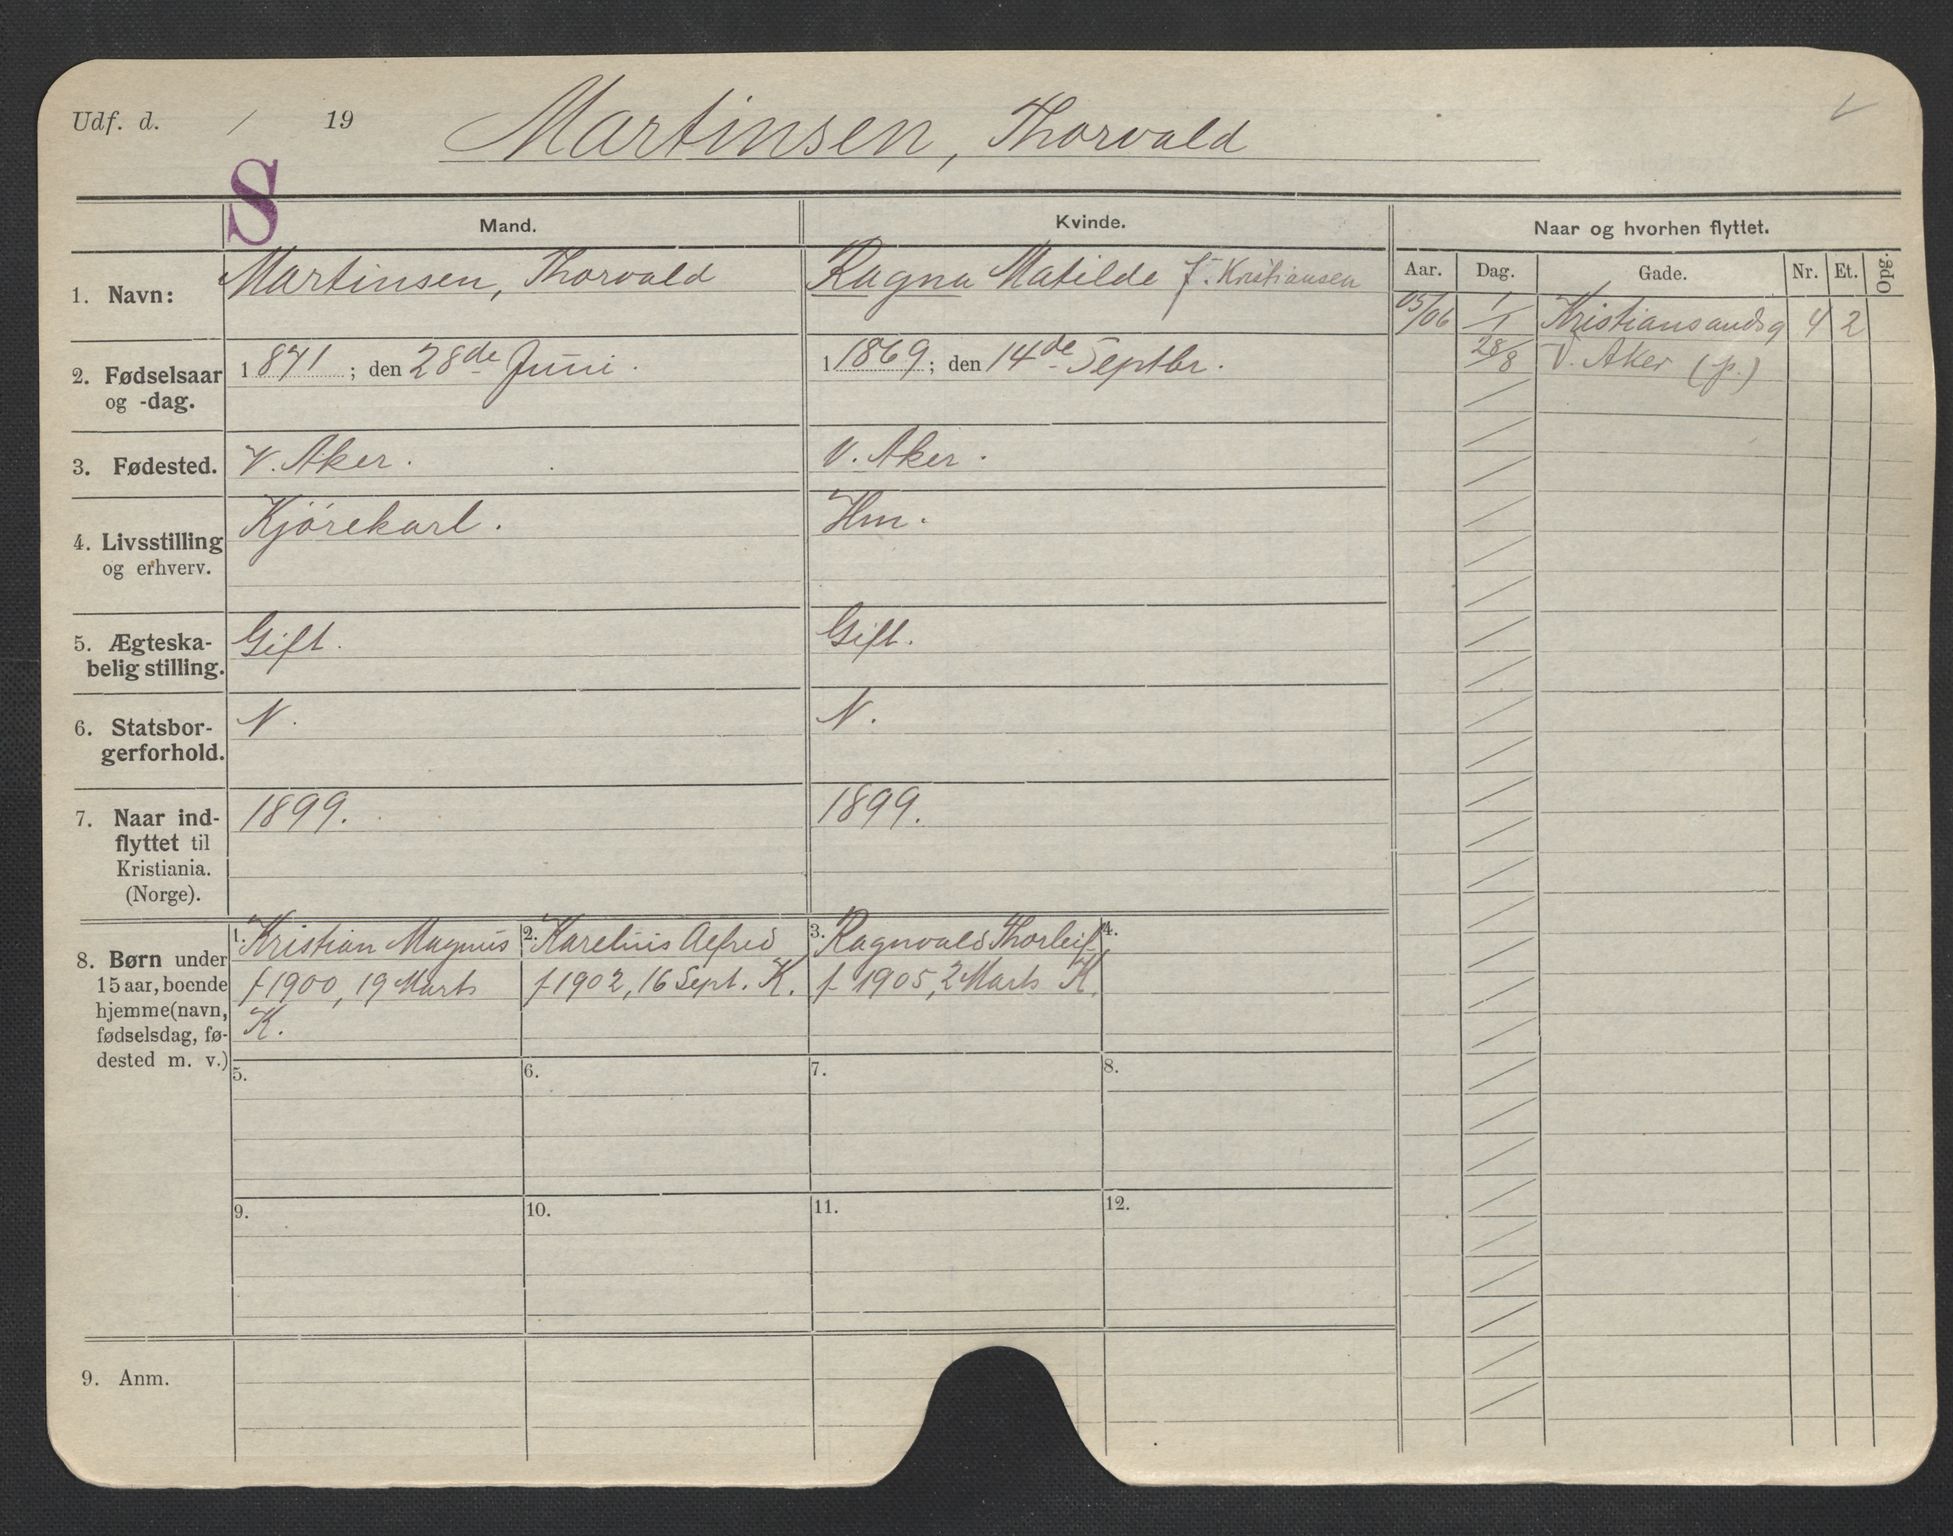 Udf. d. / 19
Martinsen, Thorvald
S
Mand.
Kvinde.
Naar og hvorhen flyttet.
Aar. Dag. Gade. Nr. Et. Opg.
1. Navn:
Martinsen, Thorvald
Ragna Matilde f. Kristiansen
05/06 1/1 Kristiansandsg 4 2
28/8 V. Aker (p.)
2. Fødselsaar
og -dag.
1871; den 28de Juni.
1869; den 14de Septbr.
3. Fødested.
V. Aker.
V. Aker.
4. Livsstilling
og erhverv.
Kjørekarl.
Hm.
5. Ægteska-
belig stilling.
Gift.
Gift.
6. Statsbor-
gerforhold.
N.
N.
7. Naar ind-
flyttet til
Kristiania.
(Norge).
1899.
1899.
8. Børn under
15 aar, boende
hjemme (navn,
fødselsdag, fø-
dested m. v.)
1. Kristian Magnus
f 1900, 19 Marts
K.
2. Karelius Alfred
f 1902, 16 Sept. K.
3. Ragnvald Thorleif
f 1905, 2 Marts K.
4.
5.
6.
7.
8.
9.
10.
11.
12.
9. Anm.